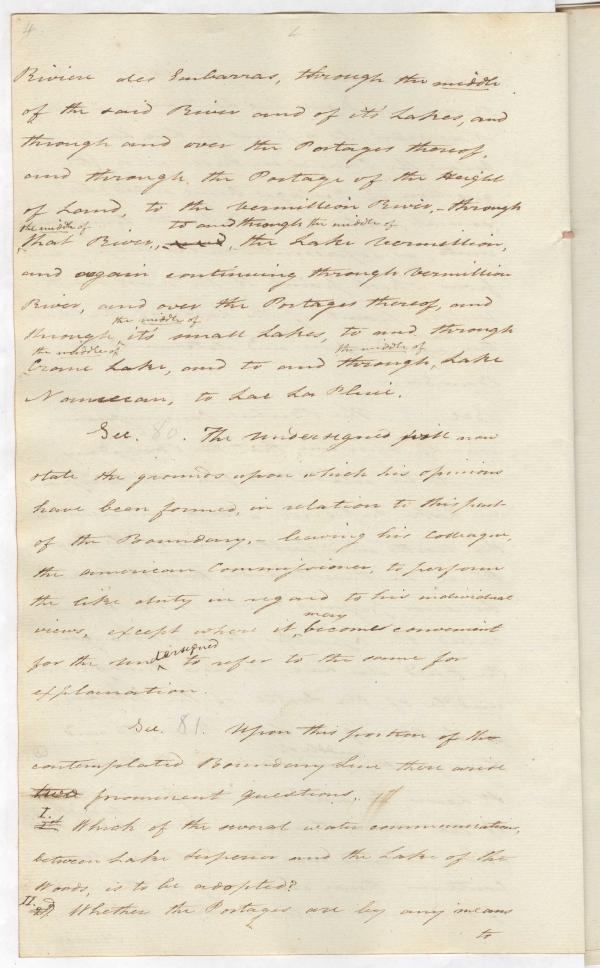 4
Riviere des Embarras, through the middle
of the said River and of it's Lakes, and
through and over the Portages thereof,
and through the Portage of the Height
of Land, to the Vermillion River,- through
the middle of to and through the middle of
that River, and, the Lake Vermillion,
and again continuing through Vermillion
River, and over the Portages thereof, and
the middle of
through it's small Lakes, to and through
the middle of the middle of
Crane Lake, and to and through, Lake
Namecan, to Lac La Pluie.
Sec. 80. The undersigned will now
state the grounds upon which his opinions
have been formed, in relation to this part
of the Boundary,- leaving his Colleague,
the american Commissioner, to perform
the like duty in regard to his individual
may
views, except where it becomes convenient
for the undersigned to refer to the same for
explanation.
Sec. 81. Upon this portion of the
contemplated Boundary Line there arise
two prominent questions,
I.
1st Which of the several water communications,
between Lake Superior and the Lake of the
Woods, is to be adopted?
II.
2d Whether the Portages are by any means
to